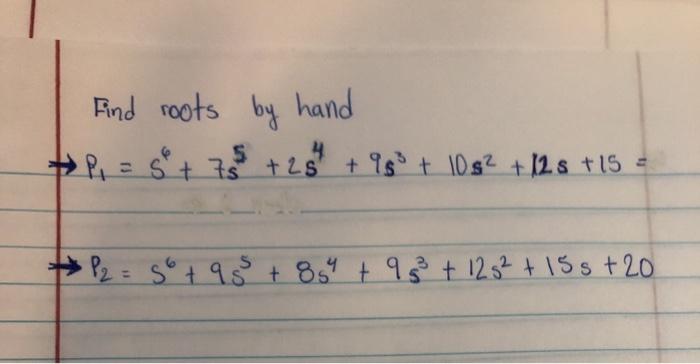 Find roots by hand
→ P₁ = s⁶ + 7s⁵ + 2s⁴ + 9s³ + 10s² + 12s + 15 =
→ P₂ = s⁶ + 9s⁵ + 8s⁴ + 9s³ + 12s² + 15s + 20